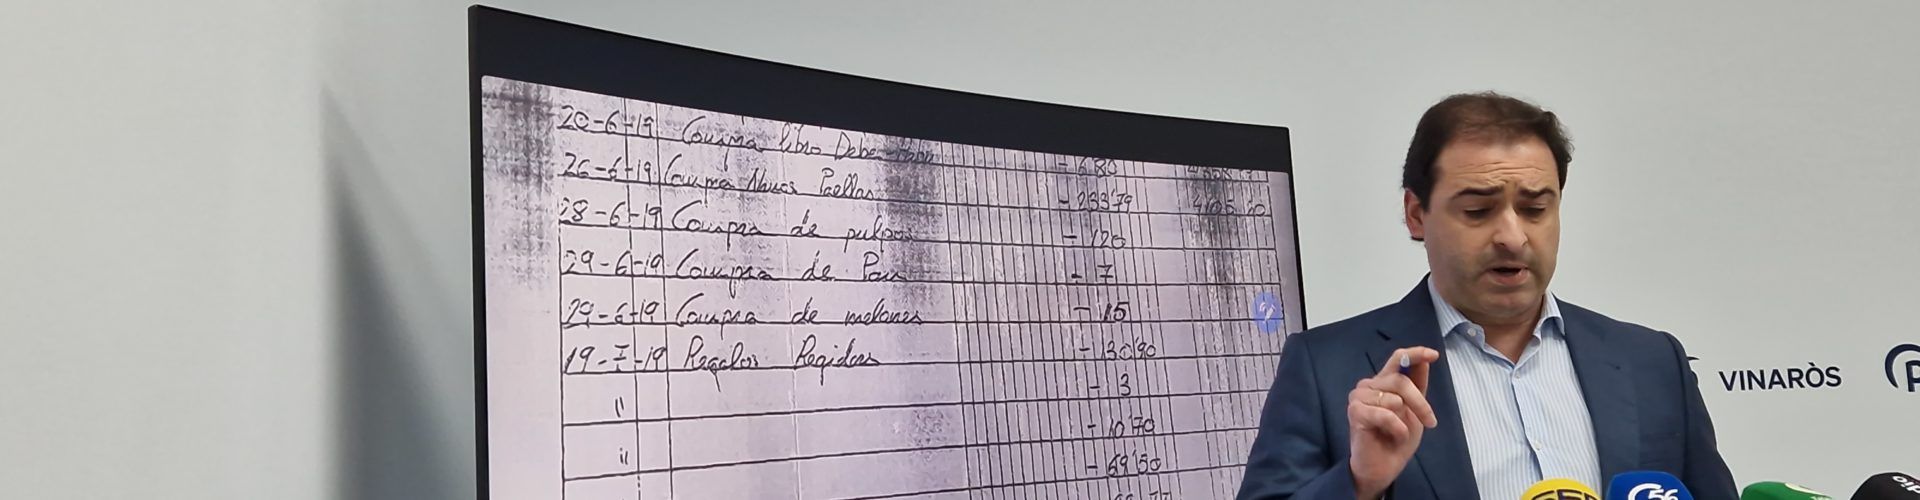 20-6-19 Compra libro Debe-Haber - 6'80
26-6-19 Compra Paellas - 233'79
28-6-19 Compra de pulpos - 120
29-6-19 Compra de Pan - 7
29-6-19 Compra de melones - 15
19-7-19 Regalos Regidors - 30'90
" - 3
- 10'70
" - 69'50
VINARÒS
SER
C56